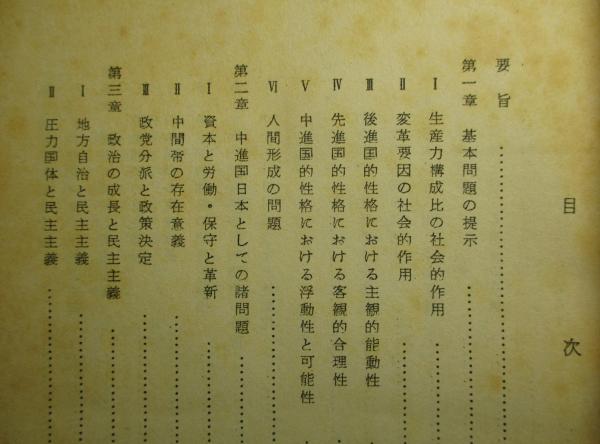 目次
要旨
第一章 基本問題の提示
Ⅰ 生産力構成比の社会的作用
Ⅱ 変革要因の社会的作用
Ⅲ 後進国的性格における主観的能動性
Ⅳ 先進国的性格における客観的合理性
Ⅴ 中進国的性格における浮動性と可能性
Ⅵ 人間形成の問題
第二章 中進国日本としての諸問題
Ⅰ 資本と労働・保守と革新
Ⅱ 中間帯の存在意義
Ⅲ 政党分派と政策決定
第三章 政治の成長と民主主義
Ⅰ 地方自治と民主主義
Ⅱ 圧力団体と民主主義